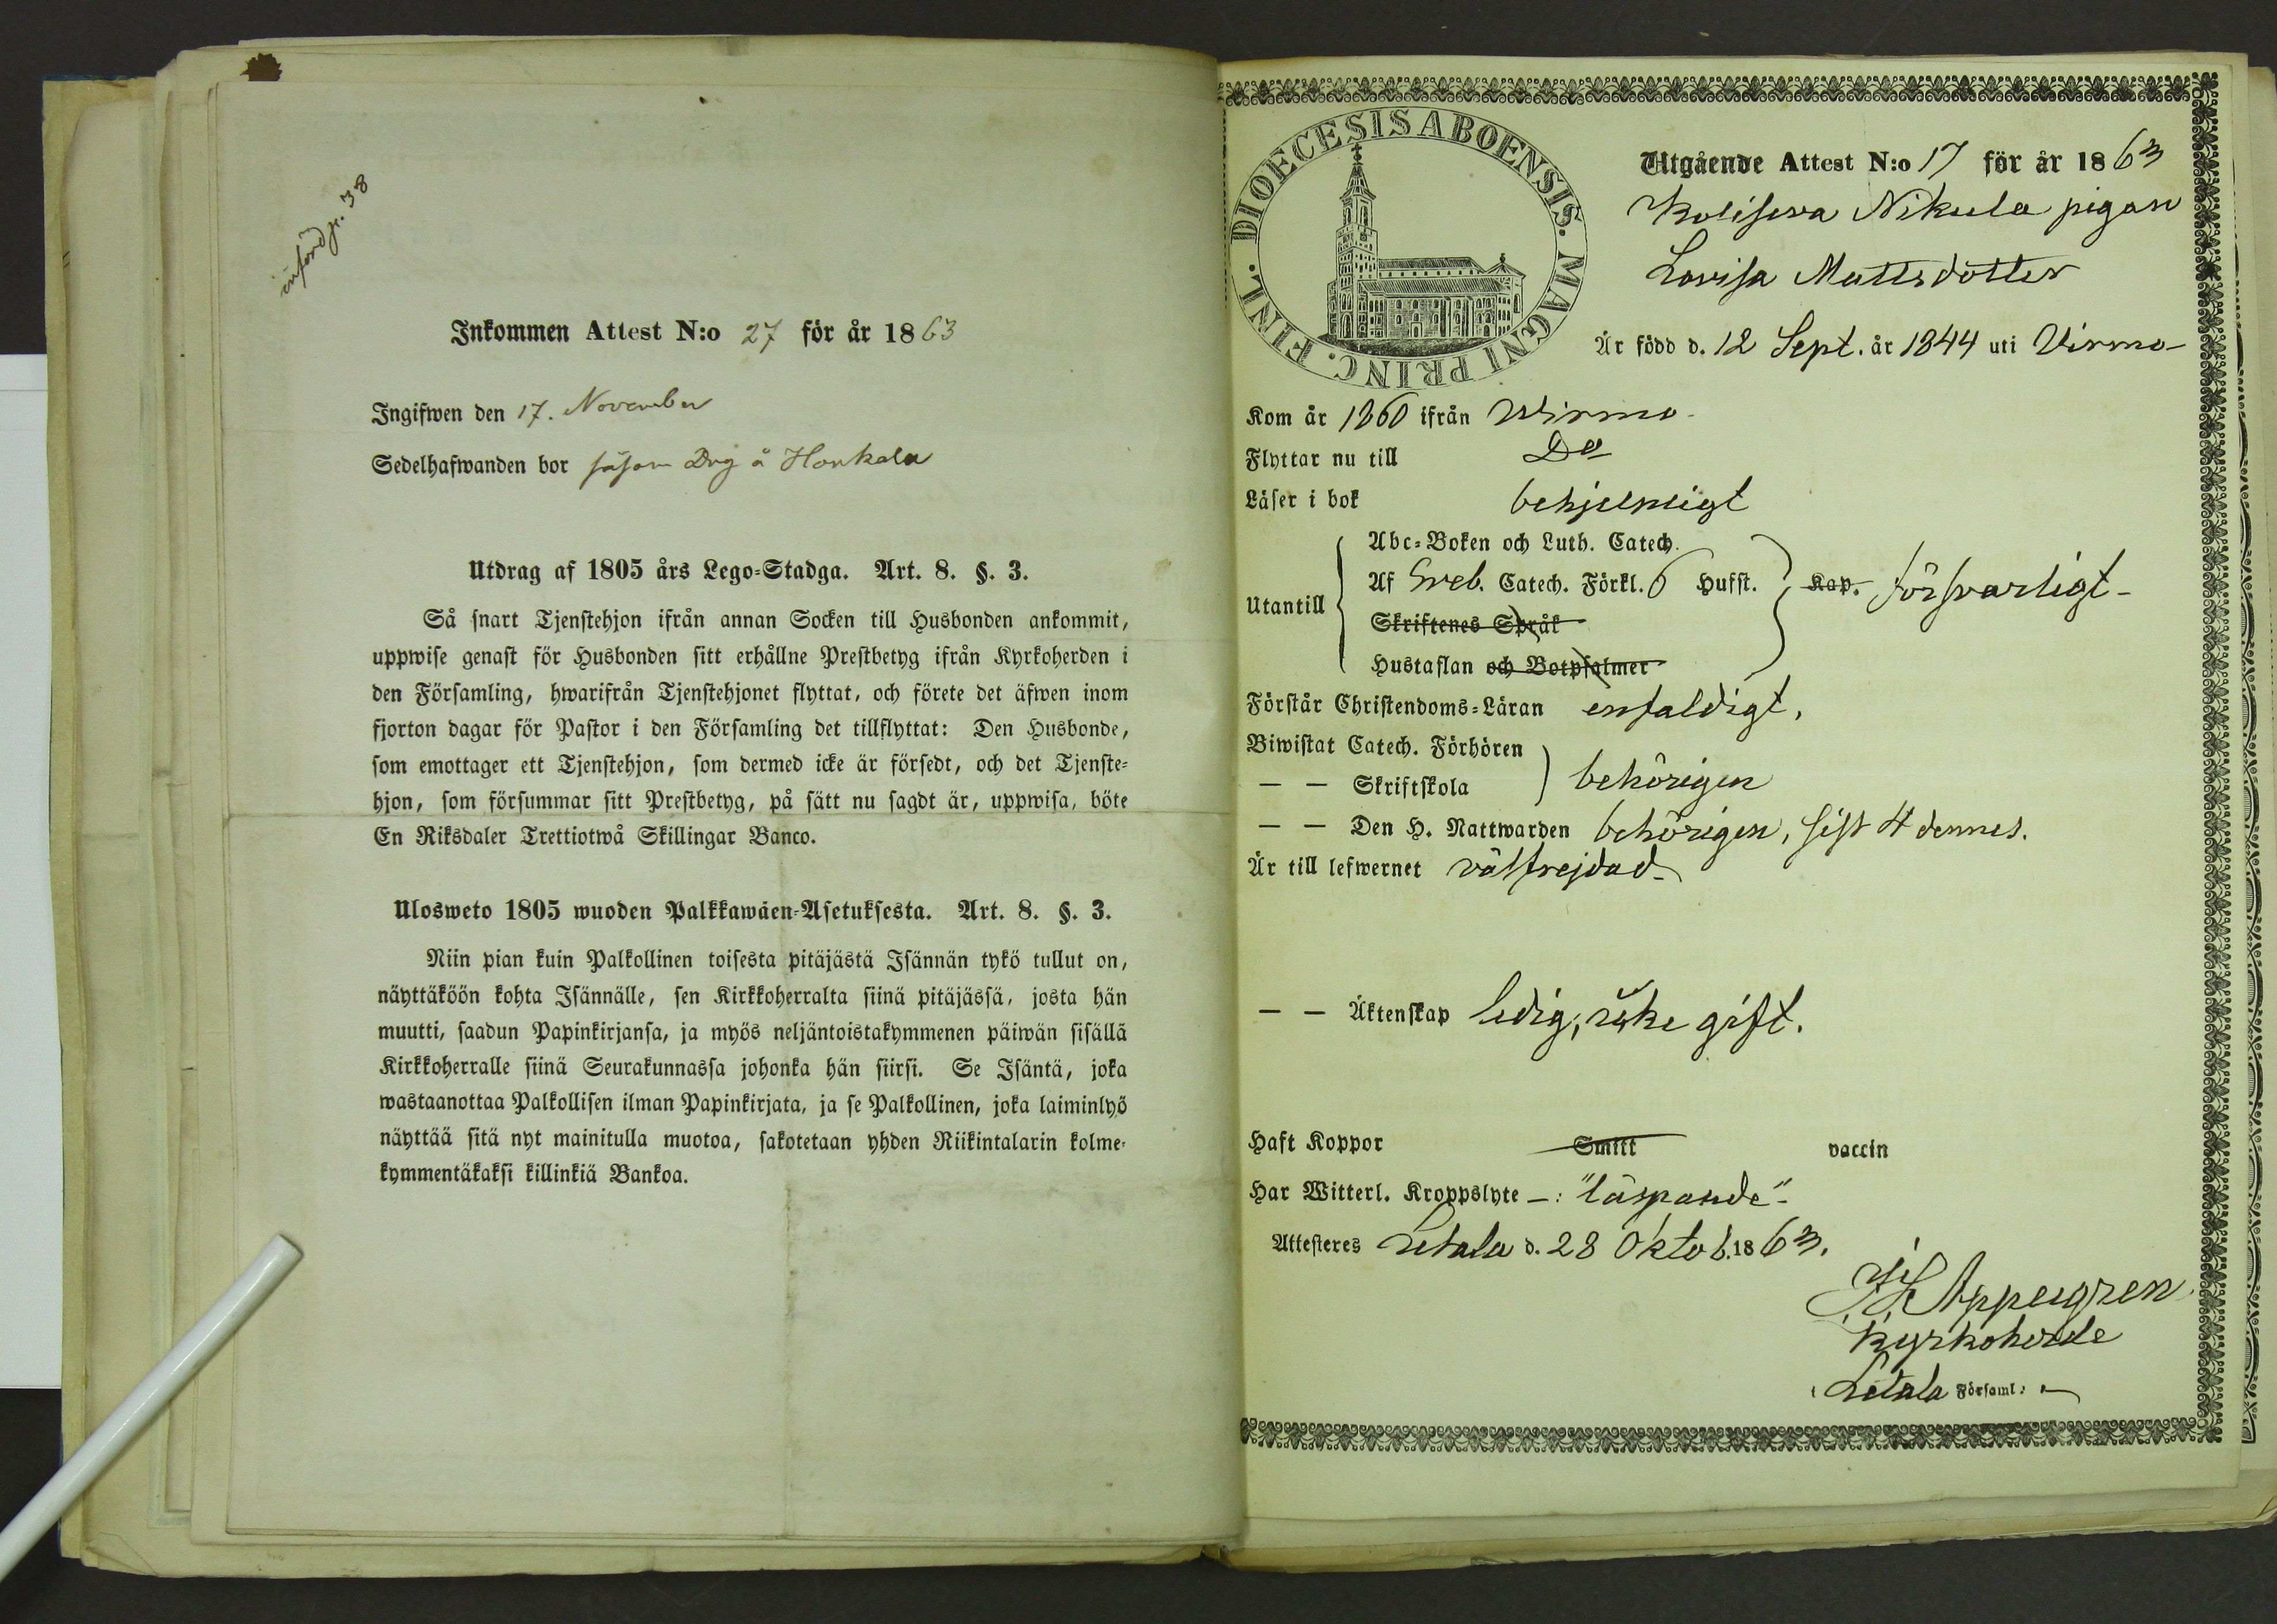 införd p. 38
Inkommen Attest N:o 27 för år 1863
Ingifwen den 17. November
Sedelhafwanden bor såsom Drg å Honkala
Utdrag af 1805 års Lego-Stadga. Art. 8. §. 3.
Så snart Tjenstehjon ifrån annan Socken till Husbonden ankommit,
uppwise genast för Husbonden sitt erhållne Prestbetyg ifrån Kyrkoherden i
den Församling, hwarifrån Tjenstehjonet flyttat, och förete det äfwen inom
fjorton dagar för Pastor i den Församling det tillflyttat: Den Husbonde,
som emottager ett Tjenstehjon, som dermed icke är försedt, och det Tjenste-
hjon, som försummar sitt Prestbetyg, på sätt nu sagdt är, uppwisa, böte
En Riksdaler Trettiotwå Skillingar Banco.
Ulosweto 1805 wuoden Palkkawäen-Asetuksesta. Art. 8. §. 3.
Niin pian kuin Palkollinen toisesta pitäjästä Isännän tykö tullut on,
näyttäköön kohta Isännälle, sen Kirkkoherralta siinä pitäjässä, josta hän
muutti, saadun Papinkirjansa, ja myös neljäntoistakymmenen päiwän sisällä
Kirkkoherralle siinä Seurakunnassa johonka hän siirsi. Se Isäntä, joka
wastaanottaa Palkollisen ilman Papinkirjata, ja se Palkollinen, joka laiminlyö
näyttää sitä nyt mainitulla muotoa, sakotetaan yhden Riikintalarin kolme-
kymmentäkaksi killinkiä Bankoa.
FINL. DIOECESIS ABOENSIS. MAGNI PRINC.
Utgående Attest N:o 17 för år 1863
Nikula pigan
Lovisa Mattsdotter
Är född d. 12 Sept. år 1844 uti Virmo
Kom år 1860 ifrån Wirmo
Flyttar nu till Do
Läser i bok behjelpligt
Abc-Boken och Luth. Catech.
Utantill Af Sveb. Catech. Förkl. 6 Hufst. Kap. försvarligt
Skriftenes Språk
Hustaflan och Botpsalmer
Förstår Christendoms-Läran enfaldigt,
Biwistat Catech. Förhören
— — Skriftskola behörigen
— — Den H. Nattwarden behörigen, sist 4 dennes.
Är till lefwernet välfrejdad
— — Äktenskap ledig, icke gift.
Haft Koppor Smitt vaccin
Har Witterl. Kroppslyte —: "läspande"
Attesteres Letala d. 28 Oktob. 1863.
Appelgren
Kyrkoherde
i Letala Församl: